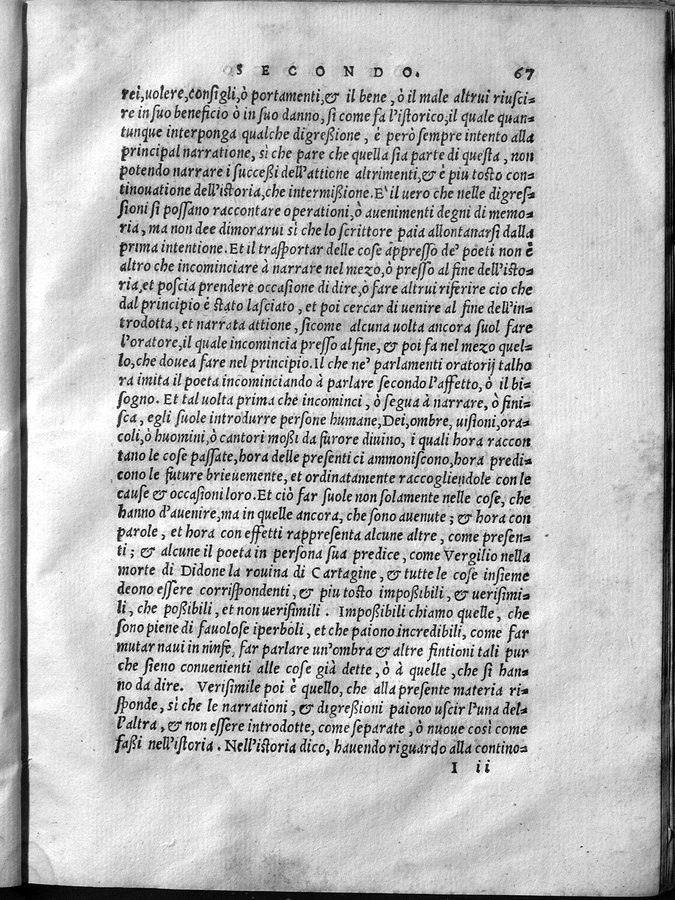 SECONDO. 67
rei, uolere, consigli, ò portamenti, & il bene, ò il male altrui riusci=
re in suo beneficio ò in suo danno, si come fa l'istorico, il quale quan=
tunque interponga qualche digreßione, è però sempre intento alla
principal narratione, sì che pare che quella sia parte di questa, non
potendo narrare i succeßi dell'attione altrimenti, & è piu tosto con=
tinouatione dell'istoria, che intermißione. E' il uero che nelle digres=
sioni si possano raccontare operationi, ò auenimenti degni di memo=
ria, ma non dee dimorarui sì che lo scrittore paia allontanarsi dalla
prima intentione. Et il trasportar delle cose appresso de' poeti non è
altro che incominciare à narrare nel mezo, ò presso al fine dell'isto=
ria, et poscia prendere occasione di dire, ò fare altrui riferire cio che
dal principio è stato lasciato, et poi cercar di uenire al fine dell'in=
trodotta, et narrata attione, sicome alcuna uolta ancora suol fare
l'oratore, il quale incomincia presso al fine, & poi fa nel mezo quel=
lo, che douea fare nel principio. Il che ne' parlamenti oratorij talho
ra imita il poeta incominciando à parlare secondo l'affetto, ò il bi=
sogno. Et tal uolta prima che incominci, ò segua à narrare, ò fini=
sca, egli suole introdurre persone humane, Dei, ombre, uisioni, ora=
coli, ò huomini, ò cantori moßi da furore diuino, i quali hora raccon
tano le cose passate, hora delle presenti ci ammoniscono, hora predi=
cono le future brieuemente, et ordinatamente raccogliendole con le
cause & occasioni loro. Et ciò far suole non solamente nelle cose, che
hanno d'auenire, ma in quelle ancora, che sono auenute; & hora con
parole, et hora con effetti rappresenta alcune altre, come presen=
ti; & alcune il poeta in persona sua predice, come Vergilio nella
morte di Didone la rouina di Cartagine, & tutte le cose insieme
deono essere corrispondenti, & piu tosto impoßibili, & uerisimi=
li, che poßibili, et non uerisimili. Impoßibili chiamo quelle, che
sono piene di fauolose iperboli, et che paiono incredibili, come far
mutar naui in ninfe, far parlare un'ombra & altre fintioni tali pur
che sieno conuenienti alle cose già dette, ò à quelle, che si han=
no da dire. Verisimile poi è quello, che alla presente materia ri=
sponde, sì che le narrationi, & digreßioni paiono uscir l'una del=
l'altra, & non essere introdotte, come separate, ò nuoue così come
faßi nell'istoria. Nell'istoria dico, hauendo riguardo alla contino=
I ii